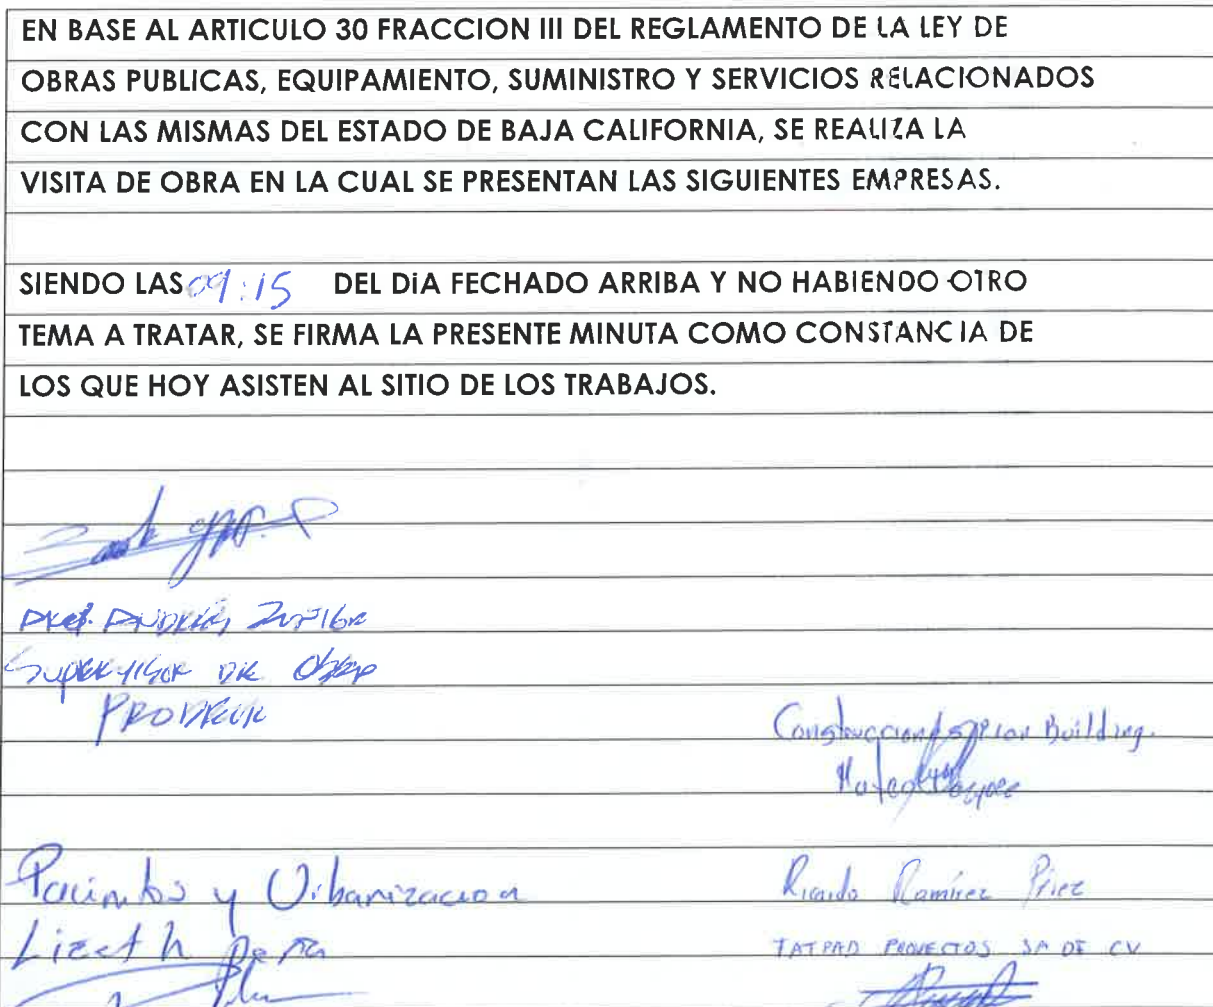 EN BASE AL ARTICULO 30 FRACCION III DEL REGLAMENTO DE LA LEY DE
OBRAS PUBLICAS, EQUIPAMIENTO, SUMINISTRO Y SERVICIOS RELACIONADOS
CON LAS MISMAS DEL ESTADO DE BAJA CALIFORNIA, SE REALIZA LA
VISITA DE OBRA EN LA CUAL SE PRESENTAN LAS SIGUIENTES EMPRESAS.
SIENDO LAS 09:15 DEL DíA FECHADO ARRIBA Y NO HABIENDO OTRO
TEMA A TRATAR, SE FIRMA LA PRESENTE MINUTA COMO CONSTANCIA DE
LOS QUE HOY ASISTEN AL SITIO DE LOS TRABAJOS.
SUPERVISOR DE
Building.
y Urbanizacion
Lizeth
Ricardo Ramírez Pérez
TATPAD PROYECTOS SA DE CV